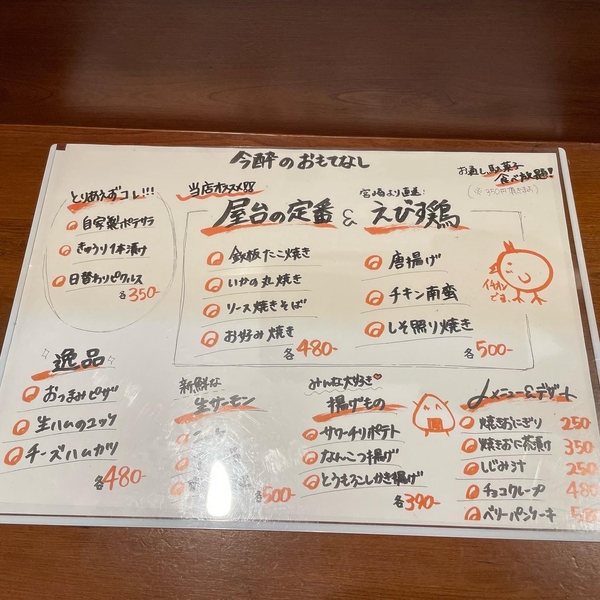 今酔のおもてなし
お通し駄菓子
食べ放題!
とりあえずコレ!!!
自家製ポテサラ
きゅうり1本漬け
日替わりピクルス
各350-
当店オススメ
屋台の定番
&
宮崎より直送!
えびす鶏
鉄板たこ焼き
いかの丸焼き
ソース焼きそば
お好み焼き
各480-
唐揚げ
チキン南蛮
しそ照り焼き
各500-
イチオシ
でーす
逸品
おつまみピザ
生ハムのユッケ
チーズハムカツ
各480-
新鮮な
生サーモン
各500-
みんな大好き
揚げもの
サワークリポテト
なんこつ揚げ
とうもろこしかき揚げ
各390-
〆メニュー&デザート
焼きおにぎり 250
焼きおに茶漬け 350
しじみ汁 250
チョコクレープ 480
ベリーパンケーキ